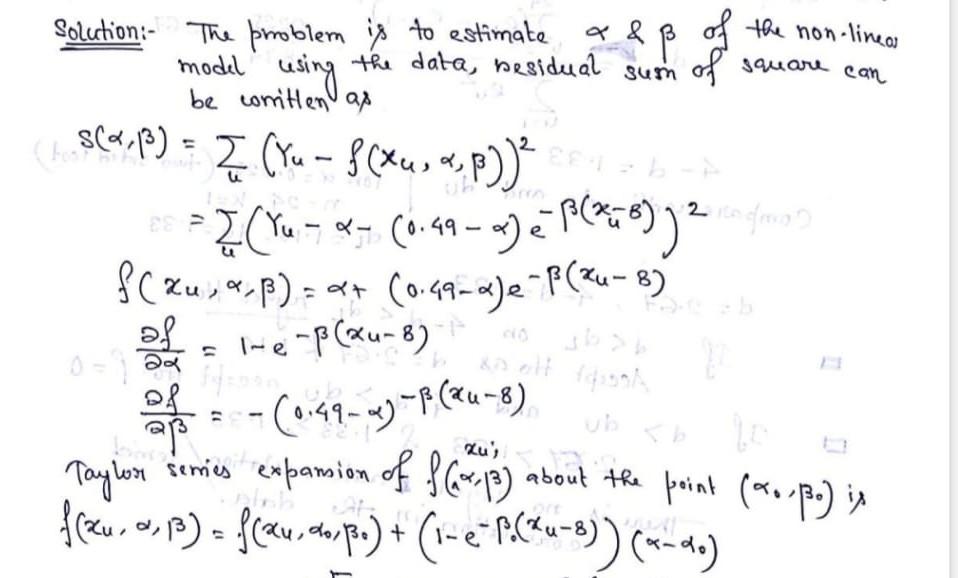 Solution:- The problem is to estimate α & β of the non-linear
model using the data, residual sum of square can
be written as
S(α,β) = Σ_u (Yu - f(xu, α, β))²
= Σ_u (Yu - α - (0.49 - α) e^-β(x_u-8))²
f(xu, α, β) = α + (0.49-α)e^-β(xu-8)
∂f/∂α = 1-e^-β(xu-8)
∂f/∂β = -(0.49-α)^-β(xu-8)
Taylor series expansion of f(xu, α,β) about the point (α₀, β₀) is
f(xu, α, β) = f(xu, α₀, β₀) + (1-e^-β₀(xu-8)) (α-α₀)